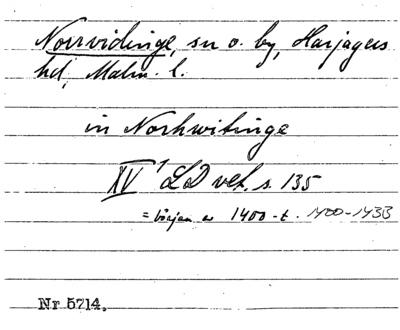 Norrvidinge, sn o. by, Harjagers
hd, Malm. l.
in Norhwitinge
XV¹ LD vet. s. 135
= början av 1400-t. 1400-1433
Nr 5714.